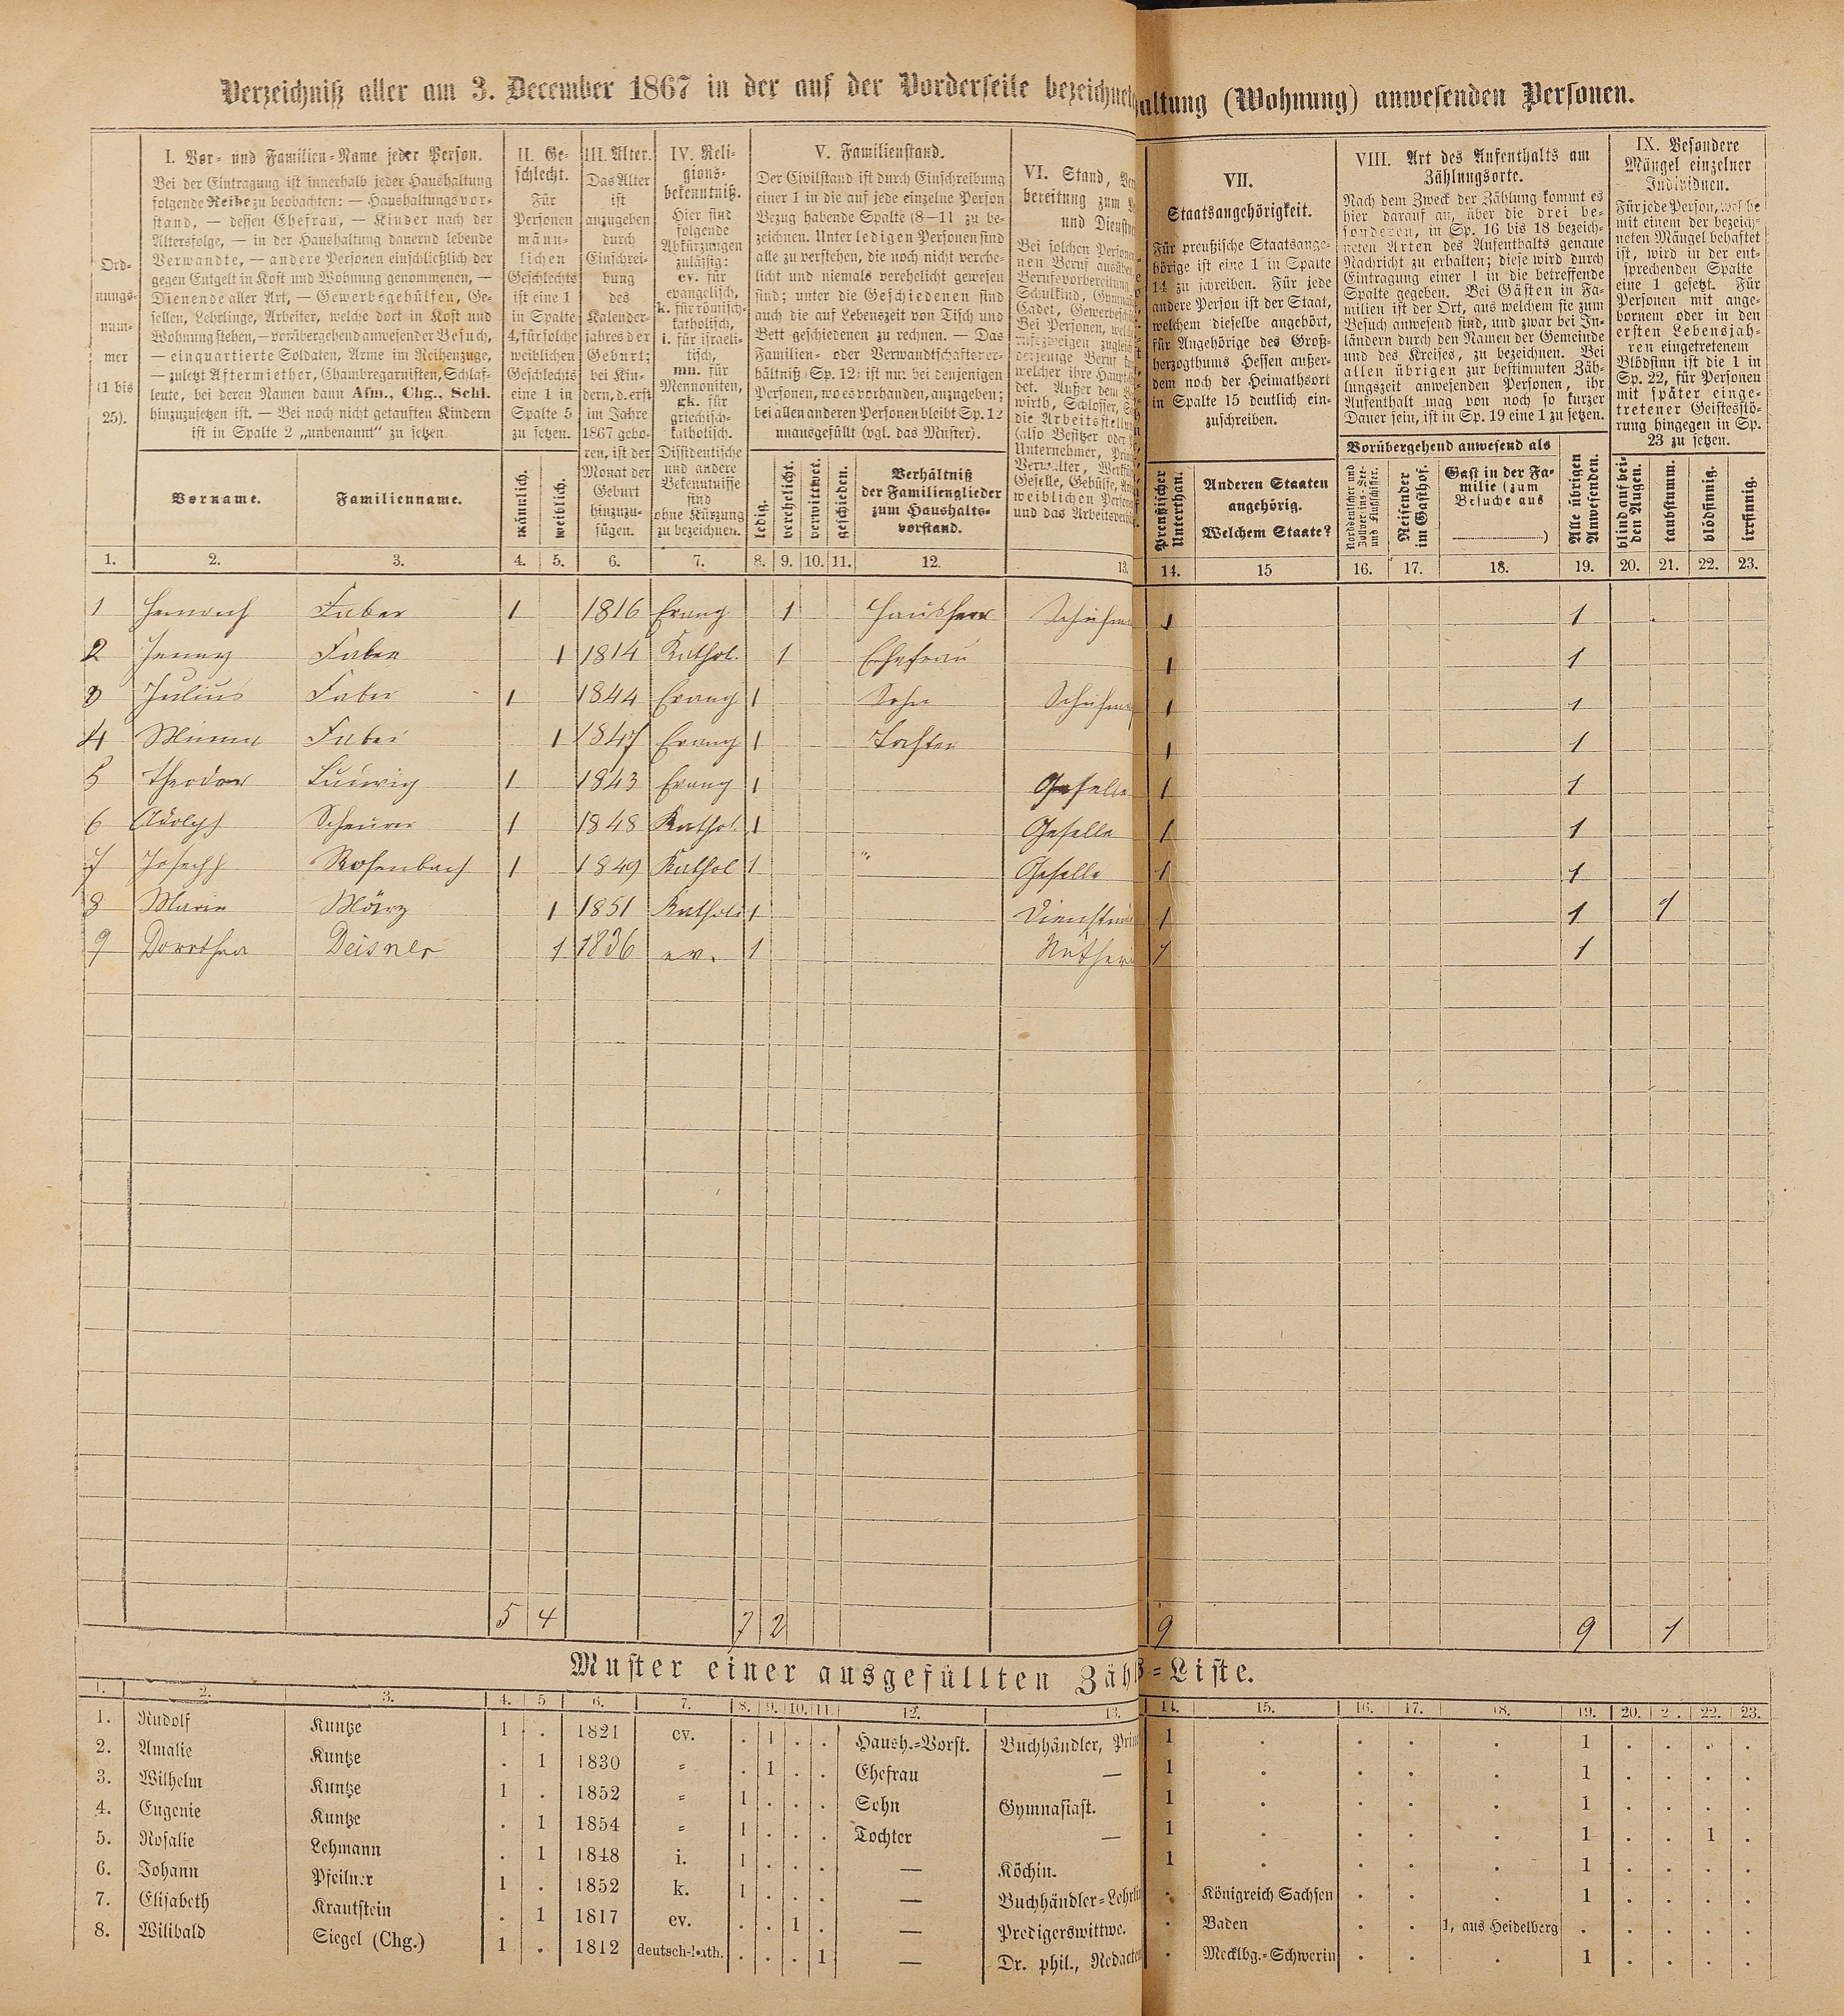 Verzeichniß aller am 3. December 1867 in der auf der Vorderseite bezeichnet altung (Wohnung) anwesenden Personen.
Ord-
nungs-
num-
mer
(1 bis
25).
I. Vor- und Familien-Name jeder Person.
Bei der Eintragung ist innerhalb jeder Haushaltung
folgende Reihe zu beobachten: — Haushaltungsvor-
stand, — dessen Ehefrau, — Kinder nach der
Altersfolge, — in der Haushaltung dauernd lebende
Verwandte, — andere Personen einschließlich der
gegen Entgelt in Kost und Wohnung genommenen, —
Dienende aller Art, — Gewerbsgehülfen, Ge-
sellen, Lehrlinge, Arbeiter, welche dort in Kost und
Wohnung stehen, — vorübergehend anwesender Besuch,
— einquartierte Soldaten, Arme im Reihenzuge,
— zuletzt Aftermiether, Chambregarnisten, Schlaf-
leute, bei deren Namen dann Afm., Chg., Schl.
hinzuzusetzen ist. — Bei noch nicht getauften Kindern
ist in Spalte 2 „unbenannt“ zu setzen.
Vorname.
Familienname.
II. Ge-
schlecht.
Für
Personen
männ-
lichen
Geschlechts
ist eine 1
in Spalte
4, für solche
weiblichen
Geschlechts
eine 1 in
Spalte 5
zu setzen.
männlich.
weiblich.
III. Alter.
Das Alter
ist
anzugeben
durch
Einschrei-
bung
des
Kalender-
jahres der
Geburt;
bei Kin-
dern, d. erst
im Jahre
1867 gebo-
ren, ist der
Monat der
Geburt
hinzuzu-
fügen.
IV. Reli-
gions-
bekenntniß.
Hier sind
folgende
Abkürzungen
zulässig:
ev. für
evangelisch,
k. für römisch-
katholisch,
i. für israeli-
tisch,
mn. für
Mennoniten,
gk. für
griechisch-
katholisch.
Dissidentische
und andere
Bekenntnisse
sind
ohne Kürzung
zu bezeichnen.
V. Familienstand.
Der Civilstand ist durch Einschreibung
einer 1 in die auf jede einzelne Person
Bezug habende Spalte (8—11) zu be-
zeichnen. Unter ledigen Personen sind
alle zu verstehen, die noch nicht verehe-
licht und niemals verehelicht gewesen
sind; unter die Geschiedenen sind
auch die auf Lebenszeit von Tisch und
Bett geschiedenen zu rechnen. — Das
Familien- oder Verwandtschaftsver-
hältniß (Sp. 12) ist nur bei denjenigen
Personen, wo es vorhanden, anzugeben;
bei allen anderen Personen bleibt Sp. 12
unausgefüllt (vgl. das Muster).
ledig.
verehelicht.
verwittwet.
geschieden.
Verhältniß
der Familienglieder
zum Haushalts-
vorstand.
VI. Stand,
bereitung zum
und Dienst
Bei solchen Personen
nen Beruf ausüben
Berufsvorbereitung
Schulkind,
Cadet,
Bei Personen,
derjenige Beruf
welcher ihre Haupt
det. Außer dem
wirth, Schlosser,
die Arbeitsstellung
(also Besitzer oder
Unternehmer,
Verwalter,
Geselle, Gehülfe,
weiblichen Personen
und das
VII.
Staatsangehörigkeit.
Für preußische Staatsange-
hörige ist eine 1 in Spalte
14 zu schreiben. Für jede
andere Person ist der Staat,
welchem dieselbe angehört,
für Angehörige des Groß-
herzogthums Hessen außer-
dem noch der Heimathsort
in Spalte 15 deutlich ein-
zuschreiben.
Preußischer
Unterthan.
Anderen Staaten
angehörig.
Welchem Staate?
VIII. Art des Aufenthalts am
Zählungsorte.
Nach dem Zweck der Zählung kommt es
hier darauf an, über die drei be-
sonderen, in Sp. 16 bis 18 bezeich-
neten Arten des Aufenthalts genaue
Nachricht zu erhalten; diese wird durch
Eintragung einer 1 in die betreffende
Spalte gegeben. Bei Gästen in Fa-
milien ist der Ort, aus welchem sie zum
Besuch anwesend sind, und zwar bei In-
ländern durch den Namen der Gemeinde
und des Kreises, zu bezeichnen. Bei
allen übrigen zur bestimmten Zäh-
lungszeit anwesenden Personen, ihr
Aufenthalt mag von noch so kurzer
Dauer sein, ist in Sp. 19 eine 1 zu setzen.
Vorübergehend anwesend als
Norddeutscher und
Zollvereins-See-
und Flußschiffer.
Reisender
im Gasthof.
Gast in der Fa-
milie (zum
Besuche aus
)
Alle übrigen
Anwesenden.
IX. Besondere
Mängel einzelner
Individuen.
Für jede Person, welche
mit einem der bezeich-
neten Mängel behaftet
ist, wird in der ent-
sprechenden Spalte
eine 1 gesetzt. Für
Personen mit ange-
bornem oder in den
ersten Lebensjah-
ren eingetretenem
Blödsinn ist die 1 in
Sp. 22, für Personen
mit später einge-
tretener Geistesstö-
rung hingegen in Sp.
23 zu setzen.
blind auf bei-
den Augen.
taubstumm.
blödsinnig.
irrsinnig.
1. 2. 3. 4. 5. 6. 7. 8. 9. 10. 11. 12. 13. 14. 15 16. 17. 18. 19. 20. 21. 22. 23.
1 Heinrich Faber 1 1816 Evang 1 Hausherr Schuhm 1 1
2 Jenny Faber 1 1814 Kathol. 1 Ehefrau 1 1
3 Julius Faber 1 1844 Evang 1 Sohn Schuhm 1 1
4 Minna Faber 1 1847 Evang 1 Tochter 1 1
5 Theodor Ludwig 1 1843 Evang 1 Geselle 1 1
6 Adolph Scheurer 1 1848 Kathol. 1 Geselle 1 1
7 Joseph Rosenbach 1 1849 Kathol 1 " Geselle 1 1
8 Marie März 1 1851 Kathol 1 Dienstm 1 1 1
9 Dorothea Deisner 1 1836 ev. 1 Näther 1 1
5 4 7 2 9 9 1
Muster einer ausgefüllten Zäh s-Liste.
1. 2. 3. 4. 5 6. 7. 8. 9. 10. 11. 12. 13. 14. 15. 16. 17. 18. 19. 20. 2 . 22. 23.
1. Rudolf Kuntze 1 . 1821 ev. . 1 . . Haush.-Vorst. Buchhändler, Prin 1 . . . . 1 . . . .
2. Amalie Kuntze . 1 1830 „ . 1 . . Ehefrau — 1 . . . . 1 . . . .
3. Wilhelm Kuntze 1 . 1852 „ 1 . . . Sohn Gymnasiast. 1 . . . . 1 . . . .
4. Eugenie Kuntze . 1 1854 „ 1 . . . Tochter — 1 . . . . 1 . . 1 .
5. Rosalie Lehmann . 1 1848 i. 1 . . . — Köchin. 1 . . . . 1 . . . .
6. Johann Pfeilner 1 . 1852 k. 1 . . . — Buchhändler-Lehrlin . Königreich Sachsen . . . 1 . . . .
7. Elisabeth Krautstein . 1 1817 ev. . . 1 . — Predigerswittwe. . Baden . . 1, aus Heidelberg . . . . .
8. Wilibald Siegel (Chg.) 1 . 1812 deutsch-kath. . . . 1 — Dr. phil., Redacteu . Mecklbg.-Schwerin . . . 1 . . . .